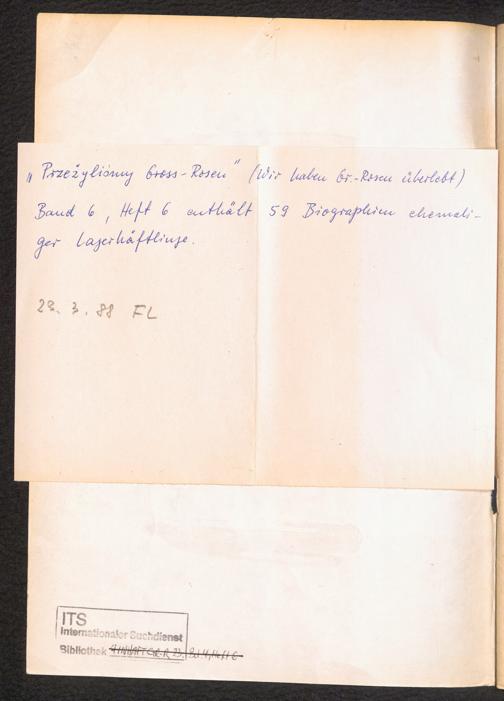 „Przeżyliśmy Gross-Rosen" (Wir haben Gr.-Rosen überlebt)
Band 6, Heft 6 enthält 59 Biographien ehemali-
ger Lagerhäftlinge.
29. 3. 88 FL
ITS
Internationaler Suchdienst
Bibliothek